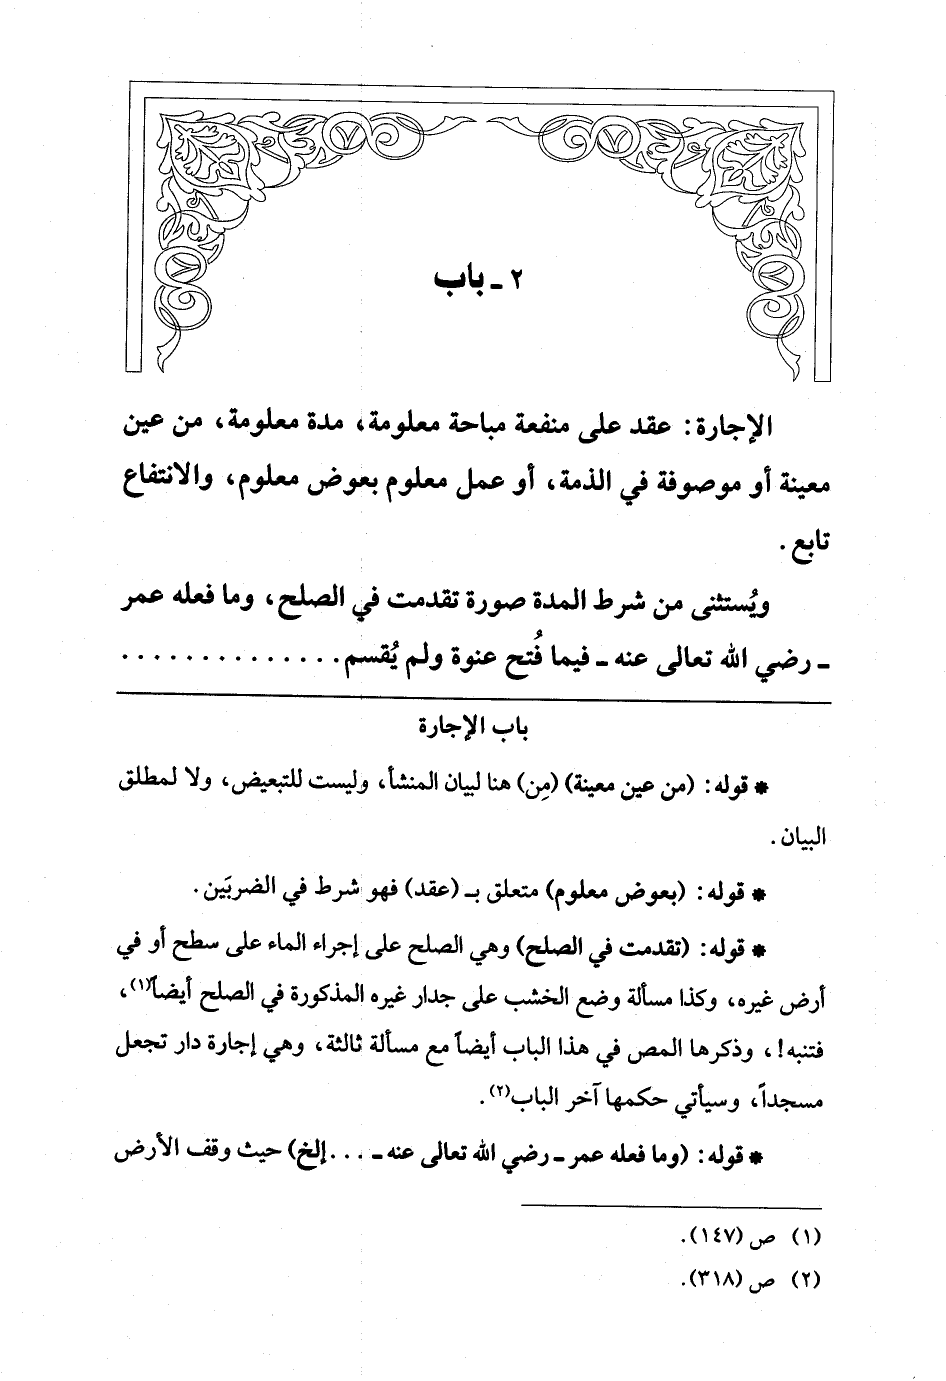 ٢ ـ باب
الإجارة: عقد على منفعة مباحة معلومة، مدة معلومة، من عين
معينة أو موصوفة في الذمة، أو عمل معلوم بعوض معلوم، والانتفاع
تابع.
ويُستثنى من شرط المدة صورة تقدمت في الصلح، وما فعله عمر
ـ رضي الله تعالى عنه ـ فيما فُتح عنوة ولم يُقسم..............
باب الإجارة
* قوله: (من عين معينة) (مِن) هنا لبيان المنشأ، وليست للتبعيض، ولا لمطلق
البيان.
* قوله: (بعوض معلوم) متعلق بـ (عقد) فهو شرط في الضربَين.
* قوله: (تقدمت في الصلح) وهي الصلح على إجراء الماء على سطح أو في
أرض غيره، وكذا مسألة وضع الخشب على جدار غيره المذكورة في الصلح أيضاً(١)،
فتنبه!، وذكرها المص في هذا الباب أيضاً مع مسألة ثالثة، وهي إجارة دار تجعل
مسجداً، وسيأتي حكمها آخر الباب(٢).
* قوله: (وما فعله عمر ـ رضي الله تعالى عنه ـ ... إلخ) حيث وقف الأرض
(١) ص (١٤٧).
(٢) ص (٣١٨).